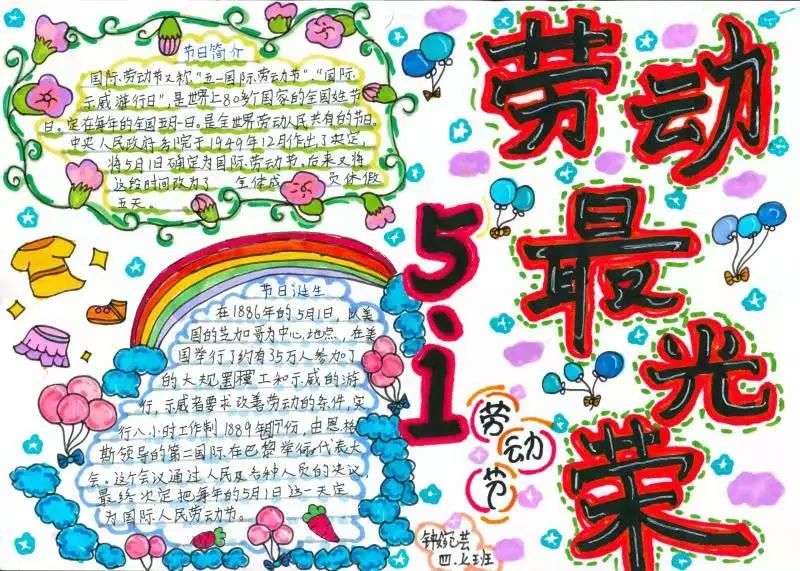 劳动最光荣
5.1
劳动节
节日简介
国际劳动节又称"五一国际劳动节","国际
示威游行日",是世界上80多个国家的全国姓节
日。定在每年的全国五月一日。是全世界劳动人民共有的节日。
中央人民政府务院于1949年12月作出了决定,
将5月1日确定为国际劳动节。后来又将
这段时间改为了 全体成 员休假
五天。
节日诞生
在1886年的5月1日,以美
国的芝加哥为中心地点,在美
国举行了约有35万人参加了
的大规罢工和示威的游
行,示威者要求改善劳动的条件,实
行八小时工作制1889年 份,由恩格
斯领导的第二国际在巴黎举行代表大
会。这个会议通过人民及各种人员的决议
最终决定把每年的5月1日这一天定
为国际人民劳动节。
钟 芸
四. 班